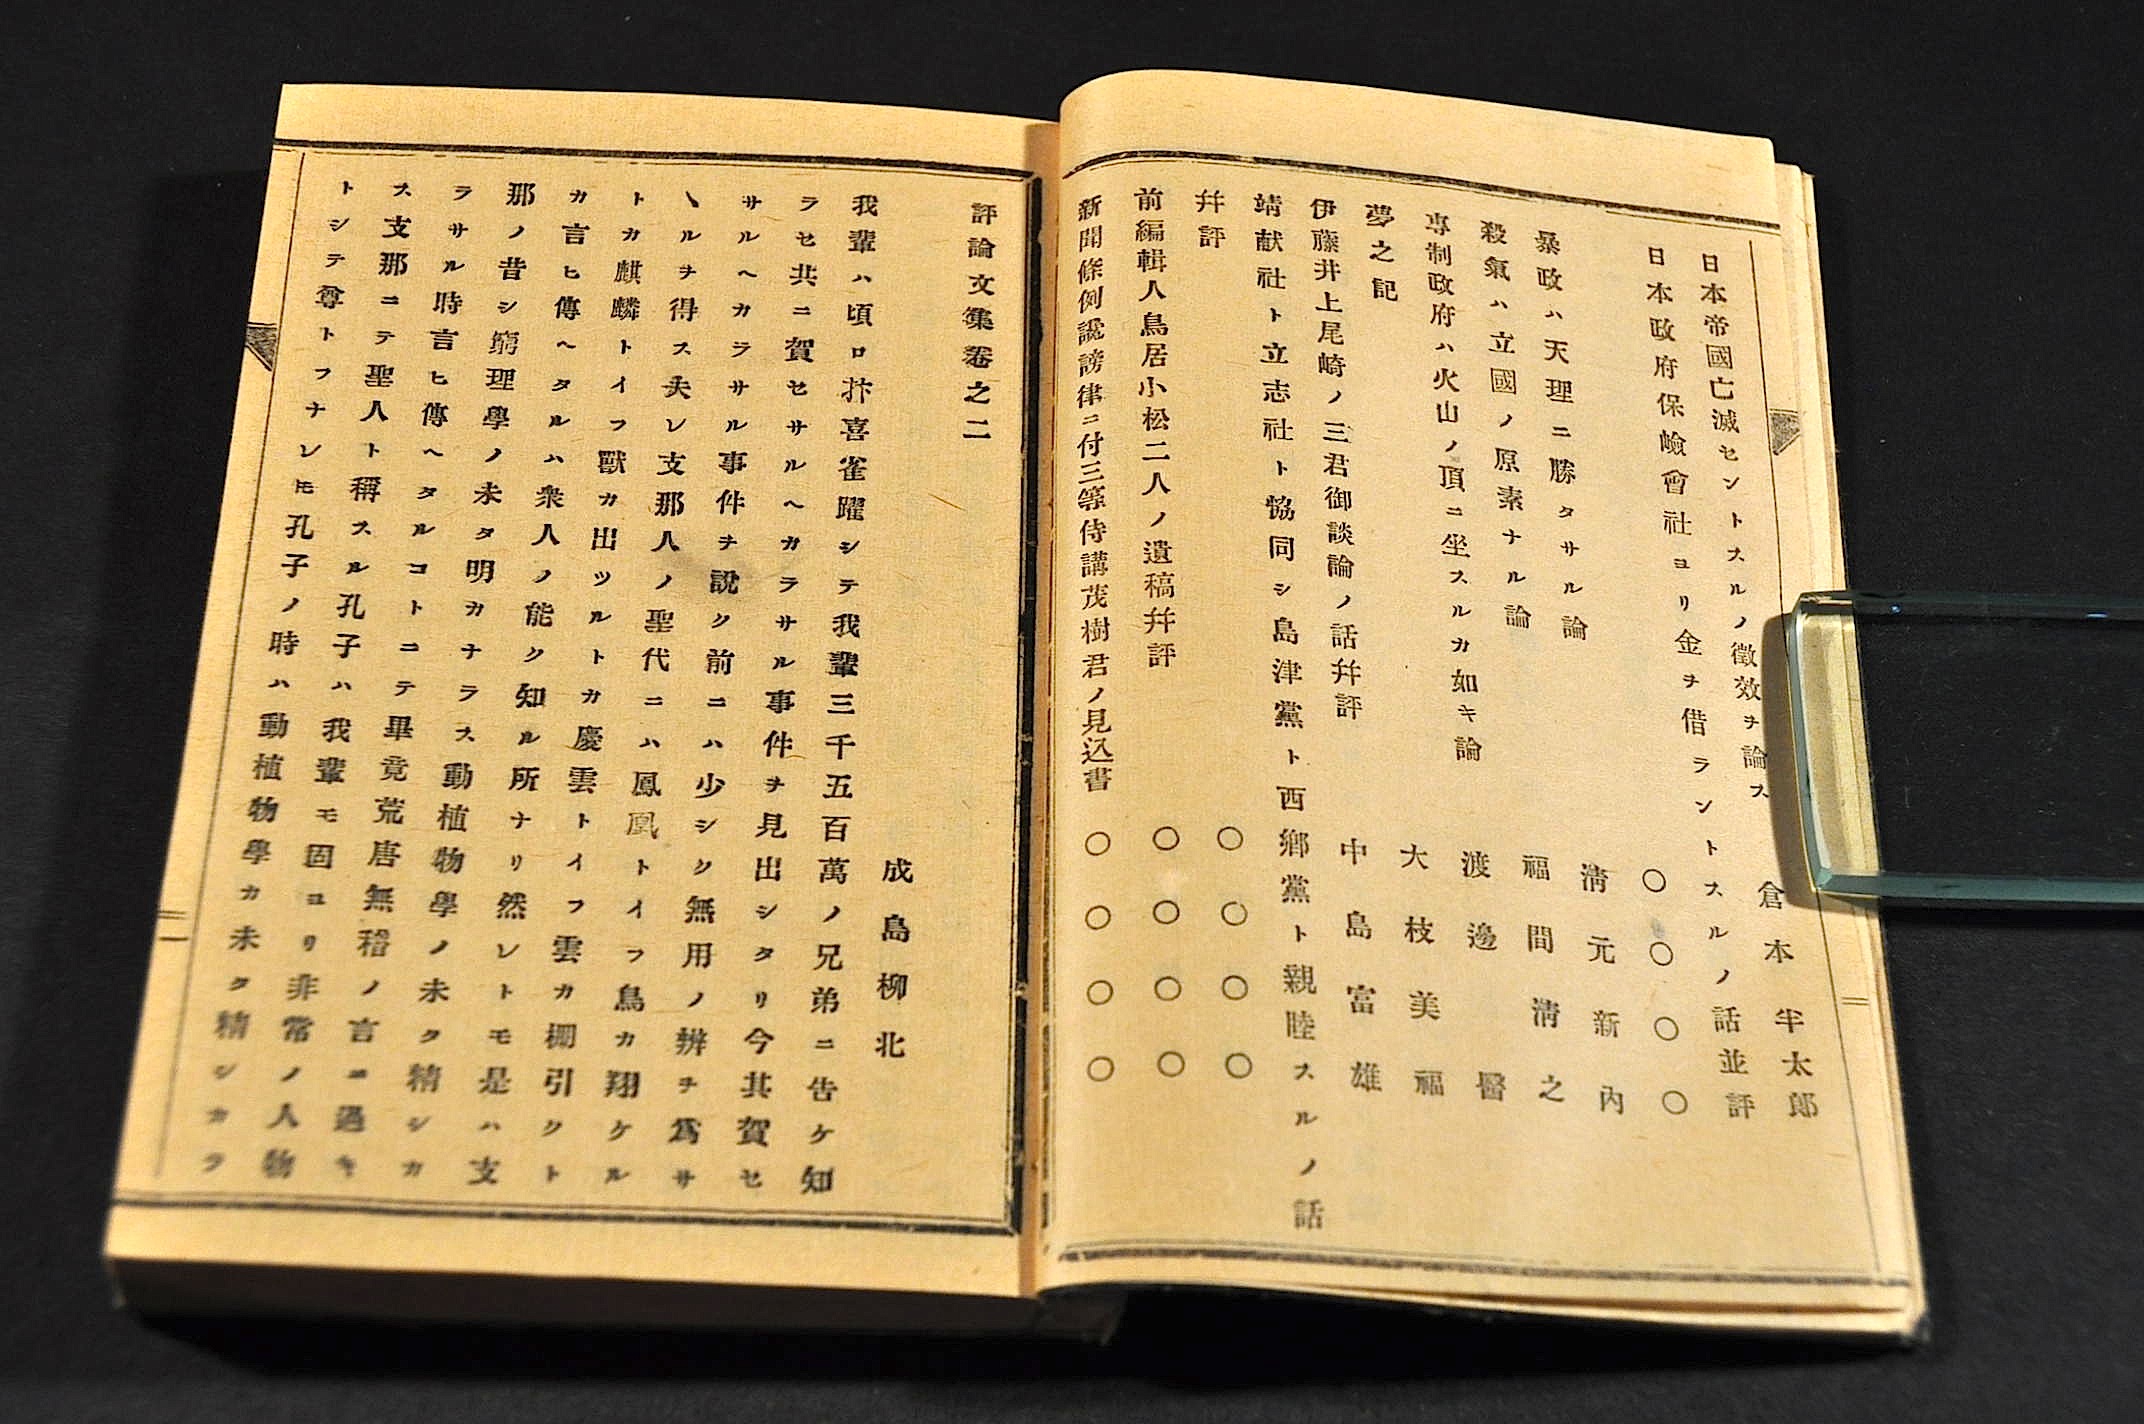 日本帝國亡滅セントスルノ徵效ヲ論ス 倉本半太郎
日本政府保險會社ヨリ金ヲ借ラントスルノ話並評
〇〇〇〇
暴政ハ天理ニ勝タサル論 淸元新內
殺氣ハ立國ノ原素ナル論 福間淸之
專制政府ハ火山ノ頂ニ坐スルカ如キ論 渡邊醫
夢之記 大枝美福
伊藤井上尾崎ノ三君御談論ノ話幷評 中島富雄
靖献社ト立志社ト恊同シ島津黨ト西鄉黨ト親睦スルノ話
幷評 〇〇〇〇
前編輯人鳥居小松二人ノ遺稿幷評 〇〇〇〇
新聞條例讒謗律ニ付三等侍講茂樹君ノ見込書 〇〇〇〇
評論文集卷之二
成島柳北
我輩ハ頃ロ抃喜雀躍シテ我輩三千五百萬ノ兄弟ニ告ケ知
ラセ共ニ賀セサルヘカラサル事件ヲ見出シタリ今其賀セ
サルヘカラサル事件ヲ說ク前ニハ少シク無用ノ辨ヲ爲サ
ヽルヲ得ス夫レ支那人ノ聖代ニハ鳳凰トイフ鳥カ翔ケル
トカ麒麟トイフ獸カ出ツルトカ慶雲トイフ雲カ棚引クト
カ言ヒ傳ヘタルハ衆人ノ能ク知ル所ナリ然レトモ是ハ支
那ノ昔シ窮理學ノ未タ明カナラス動植物學ノ未タ精シカ
ラサル時言ヒ傳ヘタルコトニテ畢竟荒唐無稽ノ言ニ過キ
ス支那ニテ聖人ト稱スル孔子ハ我輩モ固ヨリ非常ノ人物
トシテ尊トフナレ𪜈孔子ノ時ハ動植物學カ未タ精シカラ
二